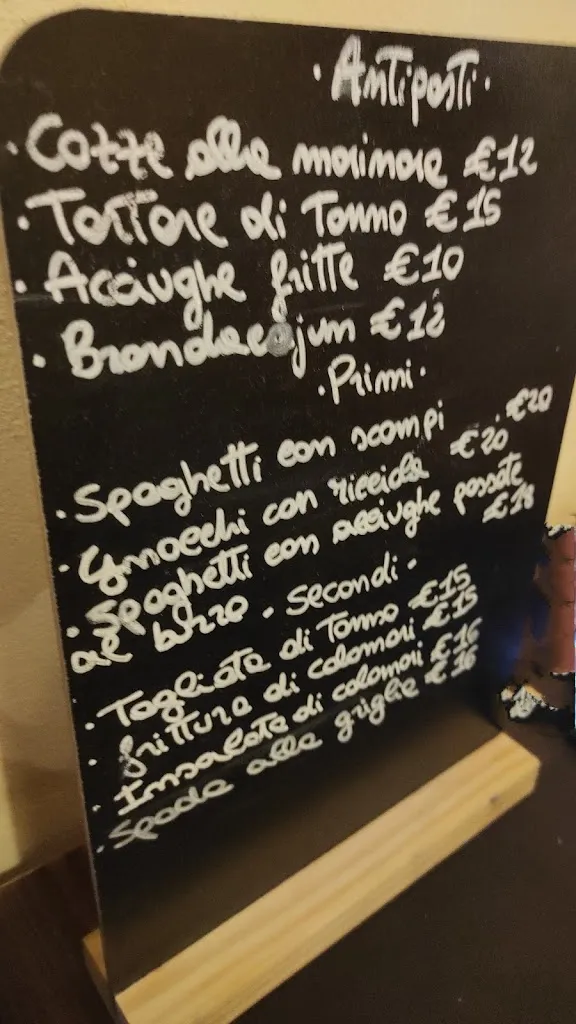 · Antipasti ·
· Cozze alla marinara €12
· Tartare di Tonno €15
· Acciughe fritte €10
· Brandacujun €12
· Primi ·
· Spaghetti con scampi €20
· Gnocchi con ricciola €20
· Spaghetti con acciughe passate €18
al burro · secondi ·
· Tagliata di Tonno €15
· frittura di calamari €15
· Insalata di calamari €16
· Spada alla griglia €16